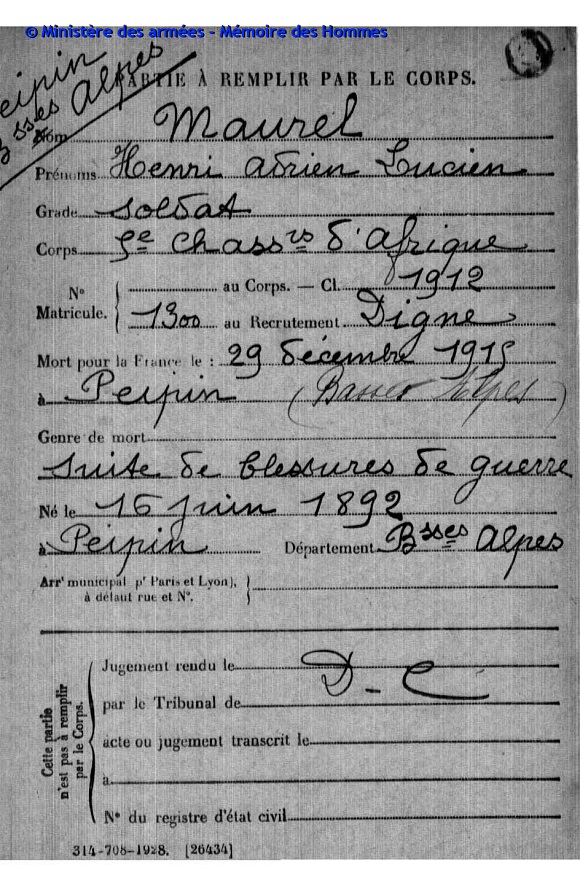 © Ministère des armées - Mémoire des Hommes
Peipin
Bsses Alpes
PARTIE À REMPLIR PAR LE CORPS.
Nom Maurel
Prénoms Henri Adrien Lucien
Grade Soldat
Corps 5e Chassrs d'Afrique
N° Matricule. { au Corps. — Cl. 1912
1300 au Recrutement Digne
Mort pour la France le : 29 décembre 1915
à Peipin (Basses Alpes)
Genre de mort
Suite de blessures de guerre
Né le 16 juin 1892
à Peipin Département Bsses Alpes
Arrt municipal pr Paris et Lyon), }
à défaut rue et N°.
Cette partie n'est pas à remplir par le Corps.
Jugement rendu le
D - C
par le Tribunal de
acte ou jugement transcrit le
à
N° du registre d'état civil
314-708-1928. [26434]